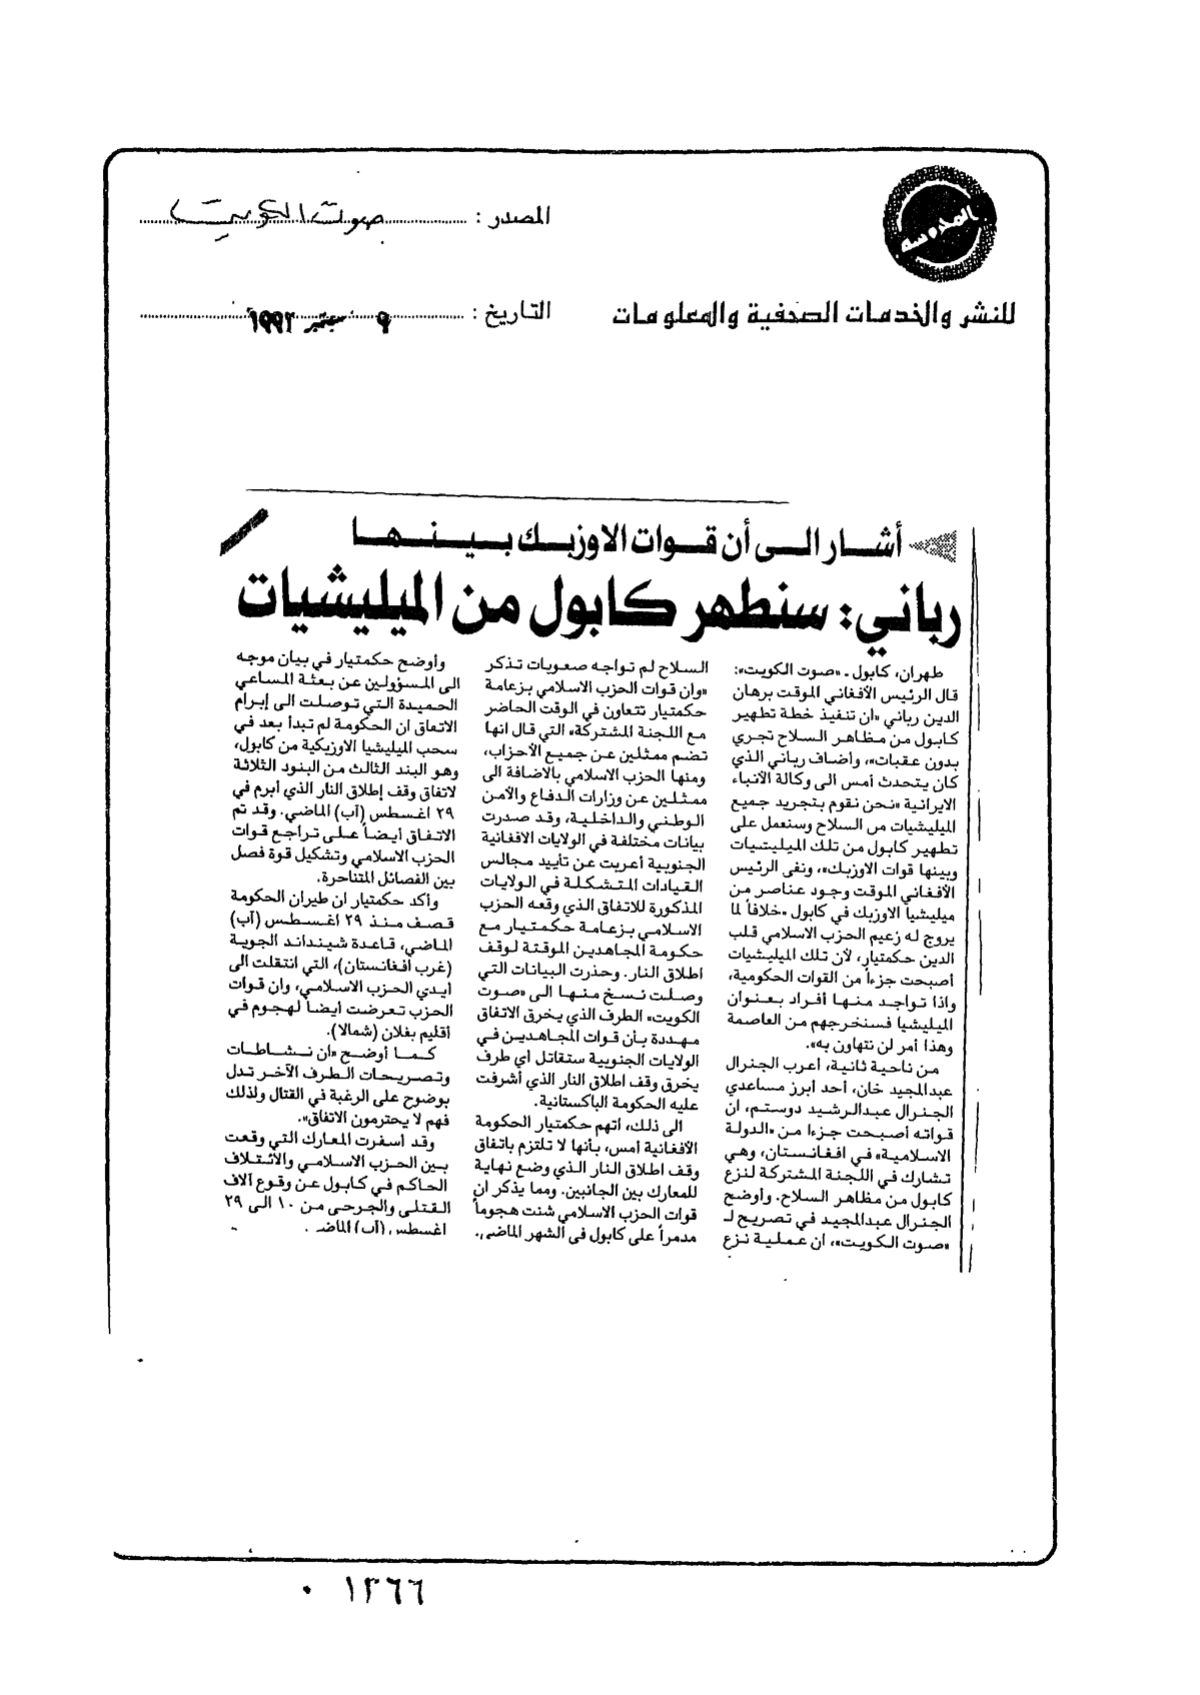 المحروسة
للنشر والخدمات الصحفية والمعلومات
المصدر : صوت الكويت
التاريخ : ٩ سبتمبر ١٩٩٢
أشار الى أن قوات الاوزبك بينها
رباني: سنطهر كابول من الميليشيات
طهران، كابول ـ «صوت الكويت»:
قال الرئيس الأفغاني الموقت برهان
الدين رباني «ان تنفيذ خطة تطهير
كابول من مظاهر السلاح تجري
بدون عقبات»، وأضاف رباني الذي
كان يتحدث أمس الى وكالة الأنباء
الايرانية «نحن نقوم بتجريد جميع
الميليشيات من السلاح وسنعمل على
تطهير كابول من تلك الميليشيات
وبينها قوات الاوزبك»، ونفى الرئيس
الأفغاني الموقت وجود عناصر من
ميليشيا الاوزبك في كابول «خلافاً لما
يروج له زعيم الحزب الاسلامي قلب
الدين حكمتيار، لأن تلك الميليشيات
أصبحت جزءاً من القوات الحكومية،
واذا تواجد منها أفراد بعنوان
الميليشيا فسنخرجهم من العاصمة
وهذا أمر لن نتهاون به».
من ناحية ثانية، أعرب الجنرال
عبدالمجيد خان، أحد ابرز مساعدي
الجنرال عبدالرشيد دوستم، ان
قواته أصبحت جزءا من «الدولة
الاسلامية» في افغانستان، وهي
تشارك في اللجنة المشتركة لنزع
كابول من مظاهر السلاح. وأوضح
الجنرال عبدالمجيد في تصريح لـ
«صوت الكويت»، ان عملية نزع
السلاح لم تواجه صعوبات تذكر
«وان قوات الحزب الاسلامي بزعامة
حكمتيار تتعاون في الوقت الحاضر
مع اللجنة المشتركة» التي قال انها
تضم ممثلين عن جميع الأحزاب،
ومنها الحزب الاسلامي بالاضافة الى
ممثلين عن وزارات الدفاع والأمن
الوطني والداخلية، وقد صدرت
بيانات مختلفة في الولايات الافغانية
الجنوبية أعربت عن تأييد مجالس
القيادات المتشكلة في الولايات
المذكورة للاتفاق الذي وقعه الحزب
الاسلامي بزعامة حكمتيار مع
حكومة المجاهدين الموقتة لوقف
اطلاق النار. وحذرت البيانات التي
وصلت نسخ منها الى «صوت
الكويت» الطرف الذي يخرق الاتفاق
مهددة بأن قوات المجاهدين في
الولايات الجنوبية ستقاتل أي طرف
يخرق وقف اطلاق النار الذي أشرفت
عليه الحكومة الباكستانية.
الى ذلك، اتهم حكمتيار الحكومة
الأفغانية أمس، بأنها لا تلتزم باتفاق
وقف اطلاق النار الذي وضع نهاية
للمعارك بين الجانبين. ومما يذكر ان
قوات الحزب الاسلامي شنت هجوماً
مدمراً على كابول في الشهر الماضي.
وأوضح حكمتيار في بيان موجه
الى المسؤولين عن بعثة المساعي
الحميدة التي توصلت الى إبرام
الاتفاق ان الحكومة لم تبدأ بعد في
سحب الميليشيا الاوزبكية من كابول،
وهو البند الثالث من البنود الثلاثة
لاتفاق وقف إطلاق النار الذي أبرم في
٢٩ اغسطس (آب) الماضي. وقد تم
الاتفاق أيضاً على تراجع قوات
الحزب الاسلامي وتشكيل قوة فصل
بين الفصائل المتناحرة.
وأكد حكمتيار ان طيران الحكومة
قصف منذ ٢٩ اغسطس (آب)
الماضي، قاعدة شينداند الجوية
(غرب أفغانستان)، التي انتقلت الى
أيدي الحزب الاسلامي، وان قوات
الحزب تعرضت أيضاً لهجوم في
أقليم بغلان (شمالا).
كما أوضح «ان نشاطات
وتصريحات الطرف الآخر تدل
بوضوح على الرغبة في القتال ولذلك
فهم لا يحترمون الاتفاق».
وقد أسفرت المعارك التي وقعت
بين الحزب الاسلامي والائتلاف
الحاكم في كابول عن وقوع آلاف
القتلى والجرحى من ١٠ الى ٢٩
اغسطس (آب) الماضي.
١٣٦٦ ٠